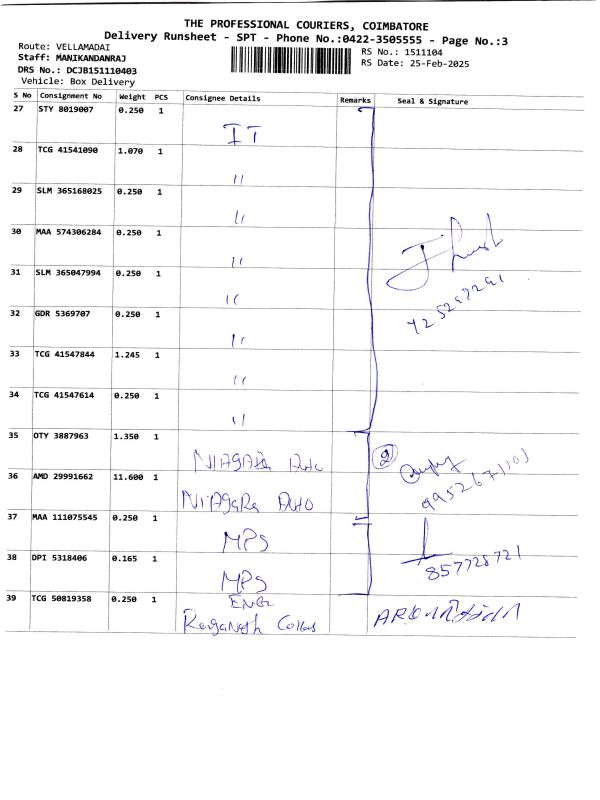 THE PROFESSIONAL COURIERS, COIMBATORE
Delivery Runsheet - SPT - Phone No.:0422-3505555 - Page No.:3
Route: VELLAMADAI
RS No.: 1511104
Staff: MANIKANDANRAJ
RS Date: 25-Feb-2025
DRS No.: DCJB151110403
Vehicle: Box Delivery
S No Consignment No Weight PCS Consignee Details Remarks Seal & Signature
27 STY 8019007 0.250 1 IT
28 TCG 41541090 1.070 1 "
29 SLM 365168025 0.250 1 "
30 MAA 574306284 0.250 1 "
31 SLM 365047994 0.250 1 "
32 GDR 5369707 0.250 1 "
33 TCG 41547844 1.245 1 "
34 TCG 41547614 0.250 1 "
35 OTY 3887963 1.350 1 NIAGARA Auto 2
36 AMD 29991662 11.600 1 NIAGaRa Auto
37 MAA 111075545 0.250 1 MPS
38 DPI 5318406 0.165 1 MPS 857728721
39 TCG 50819358 0.250 1 ENG